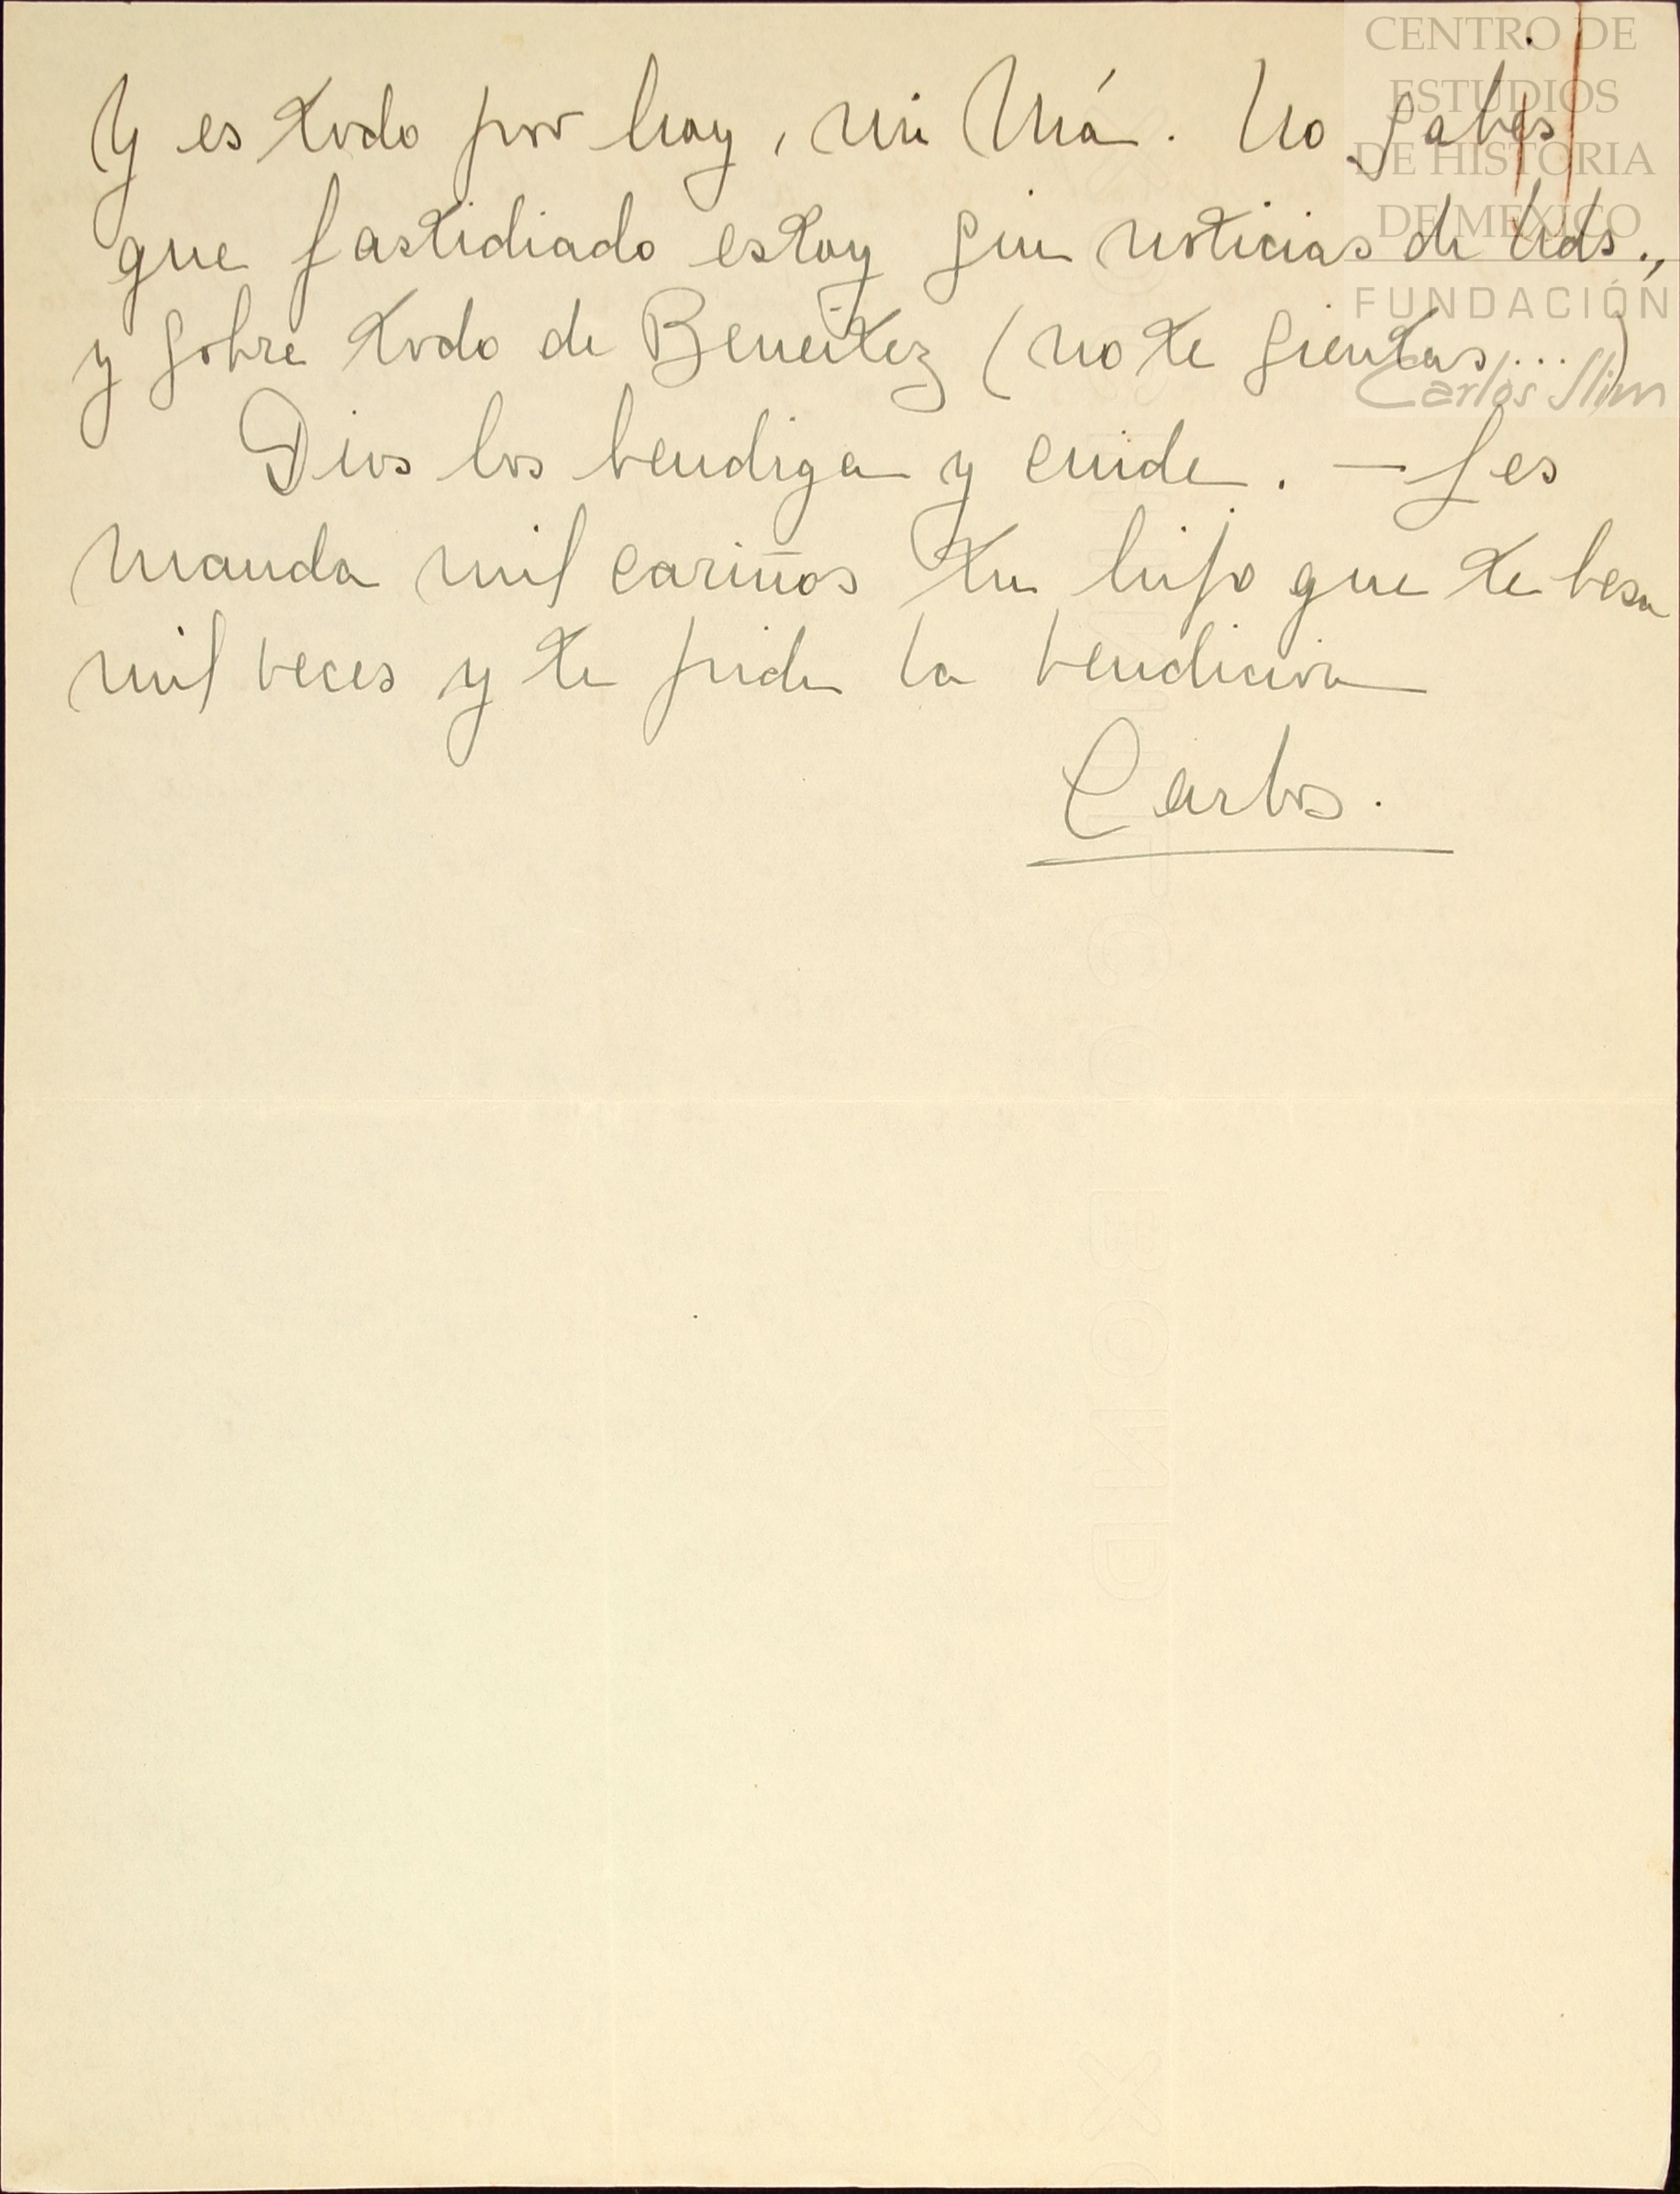 Y es todo por hoy, mi Má. No sabes
que fastidiado estoy sin noticias de Uds.,
y sobre todo de Beneitez (no te sientas...)
Dios los bendiga y cuide. — Les
manda mil cariños tu hijo que te besa
mil veces y te pide la bendición
Carlos.
CENTRO DE
ESTUDIOS
DE HISTORIA
DE MÉXICO
FUNDACIÓN
Carlos Slim
BOND